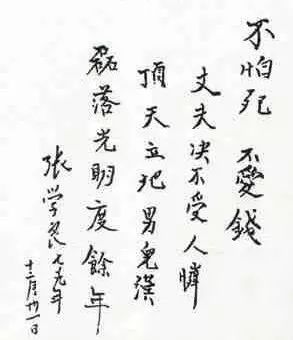 不怕死 不愛錢
丈夫决不受人憐
頂天立地男兒漢
磊落光明度餘年
張学良七九年
十二月廿一日